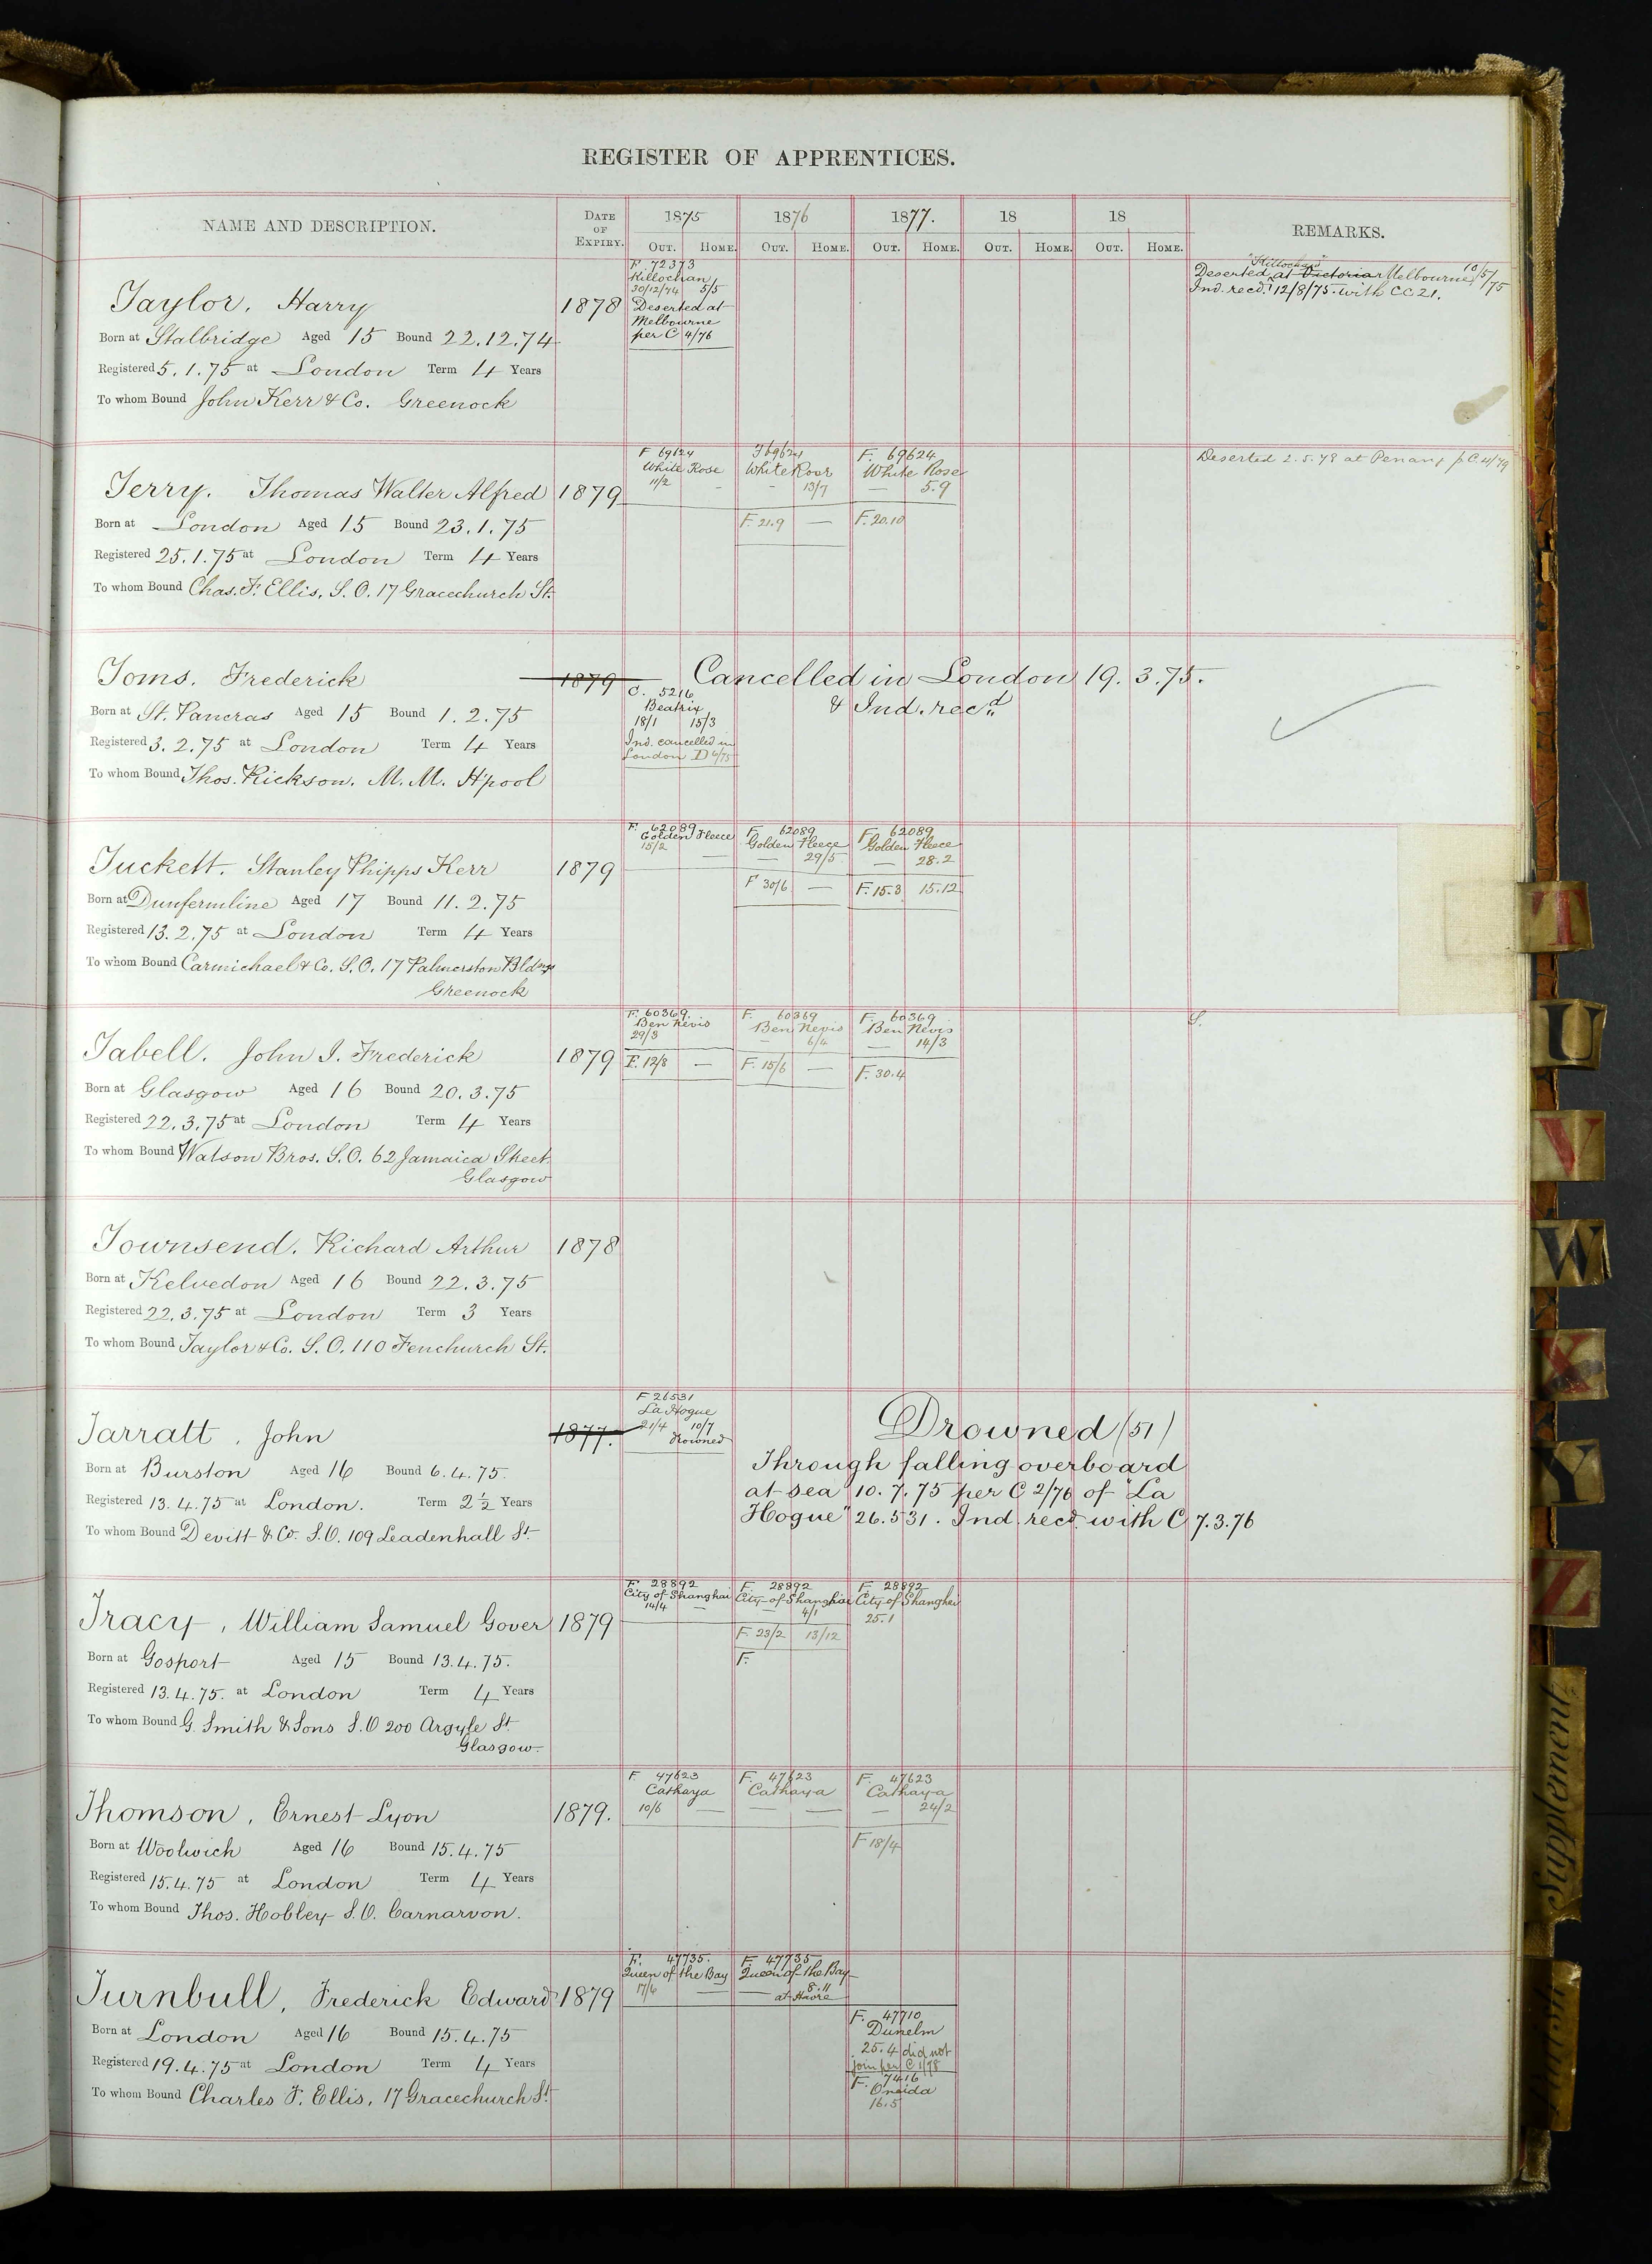 REGISTER OF APPRENTICES.
NAME AND DESCRIPTION. DATE OF EXPIRY. 1875 1876 1877. 18 18 REMARKS.
OUT. HOME. OUT. HOME. OUT. HOME. OUT. HOME. OUT. HOME.
Taylor, Harry 1878
Born at Stalbridge Aged 15 Bound 22.12.74
Registered 5.1.75 at London Term 4 Years
To whom Bound John Kerr & Co. Greenock
F. 72373
Killochan
30/12/74 5/5
Deserted at
Melbourne
per C 4/76
"Killochan"
Deserted at Victoria Melbourne 10/5/75
Ind. recd. 12/8/75. with CC21.
Terry. Thomas Walter Alfred 1879
Born at London Aged 15 Bound 23.1.75
Registered 25.1.75 at London Term 4 Years
To whom Bound Chas. F. Ellis, S.O. 17 Gracechurch St.
F 69624
White Rose
11/2 -
F 69624
White Rose
- 13/7
F. 21.9 —
F. 69624
White Rose
— 5.9
F. 20.10
Deserted 2.5.78 at Penang p C. 4/79
Toms. Frederick 1879
Born at St. Pancras Aged 15 Bound 1.2.75
Registered 3.2.75 at London Term 4 Years
To whom Bound Thos. Rickson. M.M. H'pool
C. 5216
Beatrix
18/1 15/3
Ind. cancelled in
London D 4/75
Cancelled in London 19.3.75.
& Ind. rec.d
Tuckett. Stanley Phipps Kerr 1879
Born at Dunfermline Aged 17 Bound 11.2.75
Registered 13.2.75 at London Term 4 Years
To whom Bound Carmichael & Co. S.O. 17 Palmerston Bldngs
Greenock
F. 62089
Golden Fleece
15/2 —
F. 62089
Golden Fleece
— 29/5
F 30/6 —
F. 62089
Golden Fleece
— 28.2
F. 15.3 15.12
Tabell. John J. Frederick 1879
Born at Glasgow Aged 16 Bound 20.3.75
Registered 22.3.75 at London Term 4 Years
To whom Bound Watson Bros. S.O. 62 Jamaica Street
Glasgow
F. 60369.
Ben Nevis
29/3
F. 12/8 —
F. 60369
Ben Nevis
- 6/4
F. 15/6 —
F. 60369
Ben Nevis
— 14/3
F. 30.4
S.
Townsend. Richard Arthur 1878
Born at Kelvedon Aged 16 Bound 22.3.75
Registered 22.3.75 at London Term 3 Years
To whom Bound Taylor & Co. S.O. 110 Fenchurch St.
Tarratt, John 1877.
Born at Burston Aged 16 Bound 6.4.75.
Registered 13.4.75 at London. Term 2½ Years
To whom Bound Devitt & Co. S.O. 109 Leadenhall St
F 26531
La Hogue
21/4 10/7
Drowned
Drowned (51)
Through falling overboard
at sea 10.7.75 per C 2/76 of "La
Hogue" 26.531. Ind. recd. with C 7.3.76
Tracy, William Samuel Gover 1879
Born at Gosport Aged 15 Bound 13.4.75.
Registered 13.4.75. at London Term 4 Years
To whom Bound G. Smith & Sons S.O 200 Argyle St.
Glasgow.
F. 28892
City of Shanghai
14/4 —
F. 28892
City of Shanghai
— 4/1
F. 23/2 13/12
F.
F. 28892
City of Shanghai
25.1
Thomson, Ernest Lyon 1879.
Born at Woolwich Aged 16 Bound 15.4.75
Registered 15.4.75 at London Term 4 Years
To whom Bound Thos. Hobley S.O. Carnarvon.
F. 47623
Cathaya
10/6 —
F. 47623
Cathaya
— —
F. 47623
Cathaya
— 24/2
F 18/4
Turnbull, Frederick Edward 1879
Born at London Aged 16 Bound 15.4.75
Registered 19.4.75 at London Term 4 Years
To whom Bound Charles F. Ellis, 17 Gracechurch St.
F. 47735.
Queen of the Bay
17/6 —
F. 47735
Queen of the Bay
— 8.11
at Havre
F. 47710
Dunelm
25.4 did not
join per C 1/78
F. 7416
Oneida
16.5
T
U
V
W
X
Y
Z
Supplement